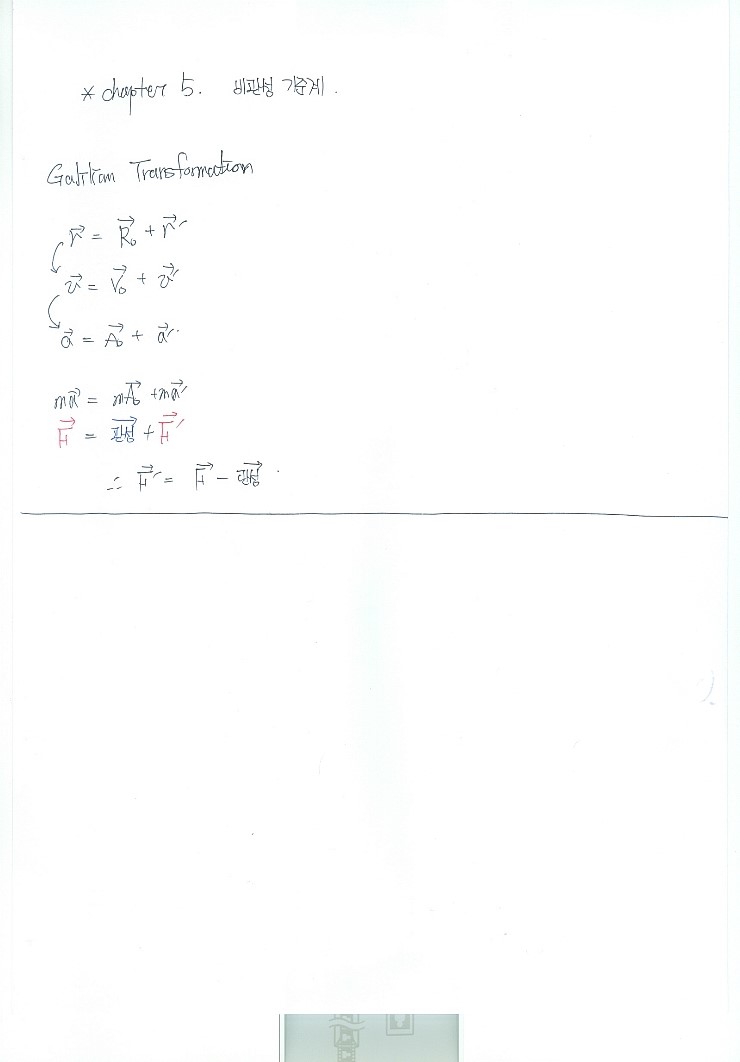 * chapter 5. 비관성 기준계.
Galilian Transformation
r⃗ = R⃗₀ + r⃗′
v⃗ = V⃗₀ + v⃗′
a⃗ = A⃗₀ + a⃗′
ma⃗ = mA⃗₀ + ma⃗′
F⃗ = 관성⃗ + F⃗′
∴ F⃗′ = F⃗ − 관성⃗